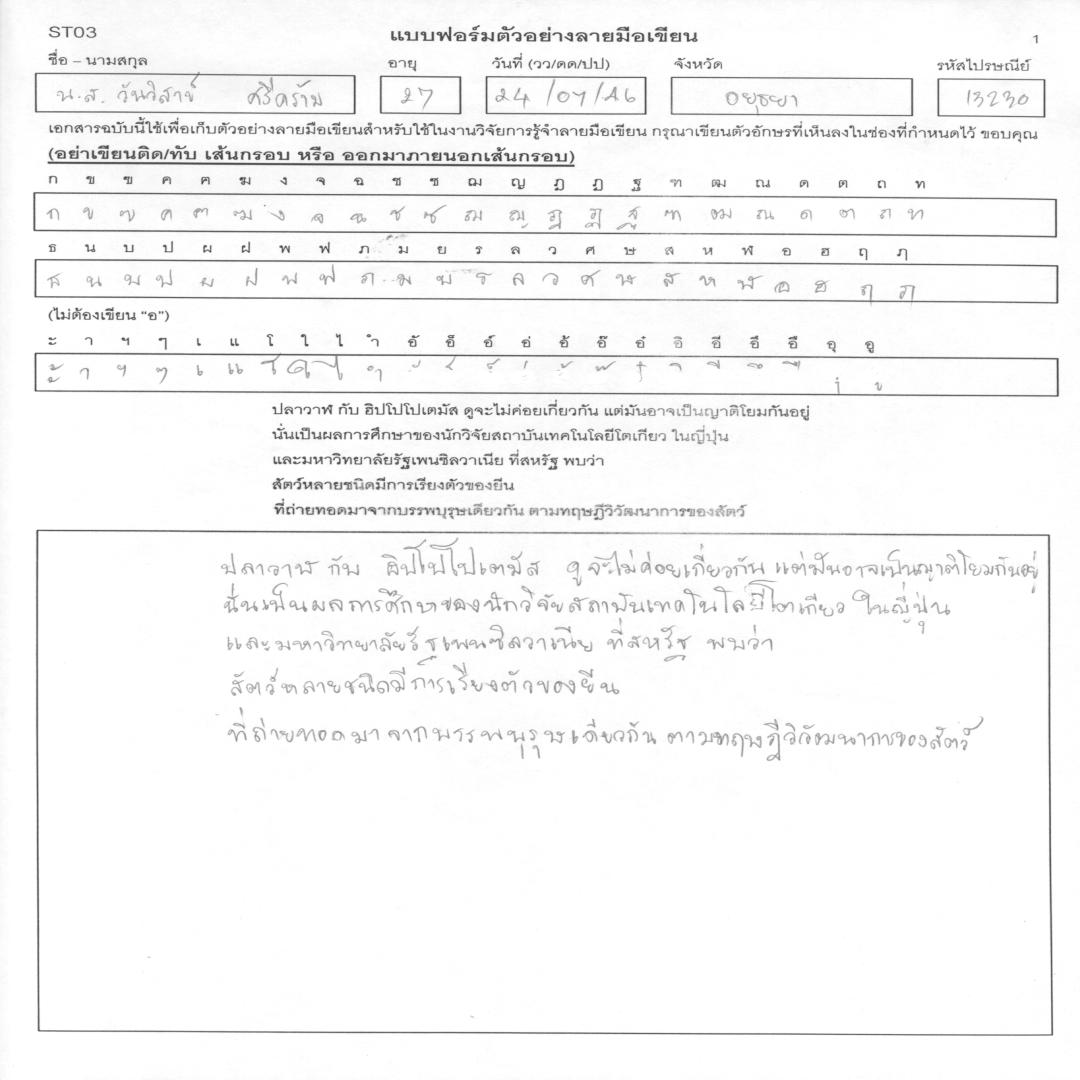 ST03
แบบฟอร์มตัวอย่างลายมือเขียน
1
ชื่อ – นามสกุล อายุ วันที่ (วว/ดด/ปป) จังหวัด รหัสไปรษณีย์
น.ส. วันวิสาข์ ศรีคร้าม 27 24/07/46 อยุธยา 13230
เอกสารฉบับนี้ใช้เพื่อเก็บตัวอย่างลายมือเขียนสำหรับใช้ในงานวิจัยการรู้จำลายมือเขียน กรุณาเขียนตัวอักษรที่เห็นลงในช่องที่กำหนดไว้ ขอบคุณ
(อย่าเขียนติด/ทับ เส้นกรอบ หรือ ออกมาภายนอกเส้นกรอบ)
ก ข ฃ ค ฅ ฆ ง จ ฉ ช ซ ฌ ญ ฎ ฏ ฐ ฑ ฒ ณ ด ต ถ ท
ก ข ฃ ค ฅ ฆ ง จ ฉ ช ซ ฌ ญ ฎ ฏ ฐ ฑ ฒ ณ ด ต ถ ท
ธ น บ ป ผ ฝ พ ฟ ภ ม ย ร ล ว ศ ษ ส ห ฬ อ ฮ ฤ ฦ
ธ น บ ป ผ ฝ พ ฟ ภ ม ย ร ล ว ศ ษ ส ห ฬ อ ฮ ฤ ฦ
(ไม่ต้องเขียน “อ”)
ะ า ฯ ๆ เ แ โ ใ ไ ำ อั อ็ อ์ อ่ อ้ อ๊ อ๋ อิ อี อึ อื อุ อู
ะ า ฯ ๆ เ แ โ ใ ไ ำ
ปลาวาฬ กับ ฮิปโปโปเตมัส ดูจะไม่ค่อยเกี่ยวกัน แต่มันอาจเป็นญาติโยมกันอยู่
นั่นเป็นผลการศึกษาของนักวิจัยสถาบันเทคโนโลยีโตเกียว ในญี่ปุ่น
และมหาวิทยาลัยรัฐเพนซิลวาเนีย ที่สหรัฐ พบว่า
สัตว์หลายชนิดมีการเรียงตัวของยีน
ที่ถ่ายทอดมาจากบรรพบุรุษเดียวกัน ตามทฤษฎีวิวัฒนาการของสัตว์
ปลาวาฬ กับ ฮิปโปโปเตมัส ดูจะไม่ค่อยเกี่ยวกัน แต่มันอาจเป็นญาติโยมกันอยู่
นั่นเป็นผลการศึกษาของนักวิจัยสถาบันเทคโนโลยีโตเกียว ในญี่ปุ่น
และมหาวิทยาลัยรัฐเพนซิลวาเนีย ที่สหรัฐ พบว่า
สัตว์หลายชนิดมีการเรียงตัวของยีน
ที่ถ่ายทอดมาจากบรรพบุรุษเดียวกัน ตามทฤษฎีวิวัฒนาการของสัตว์